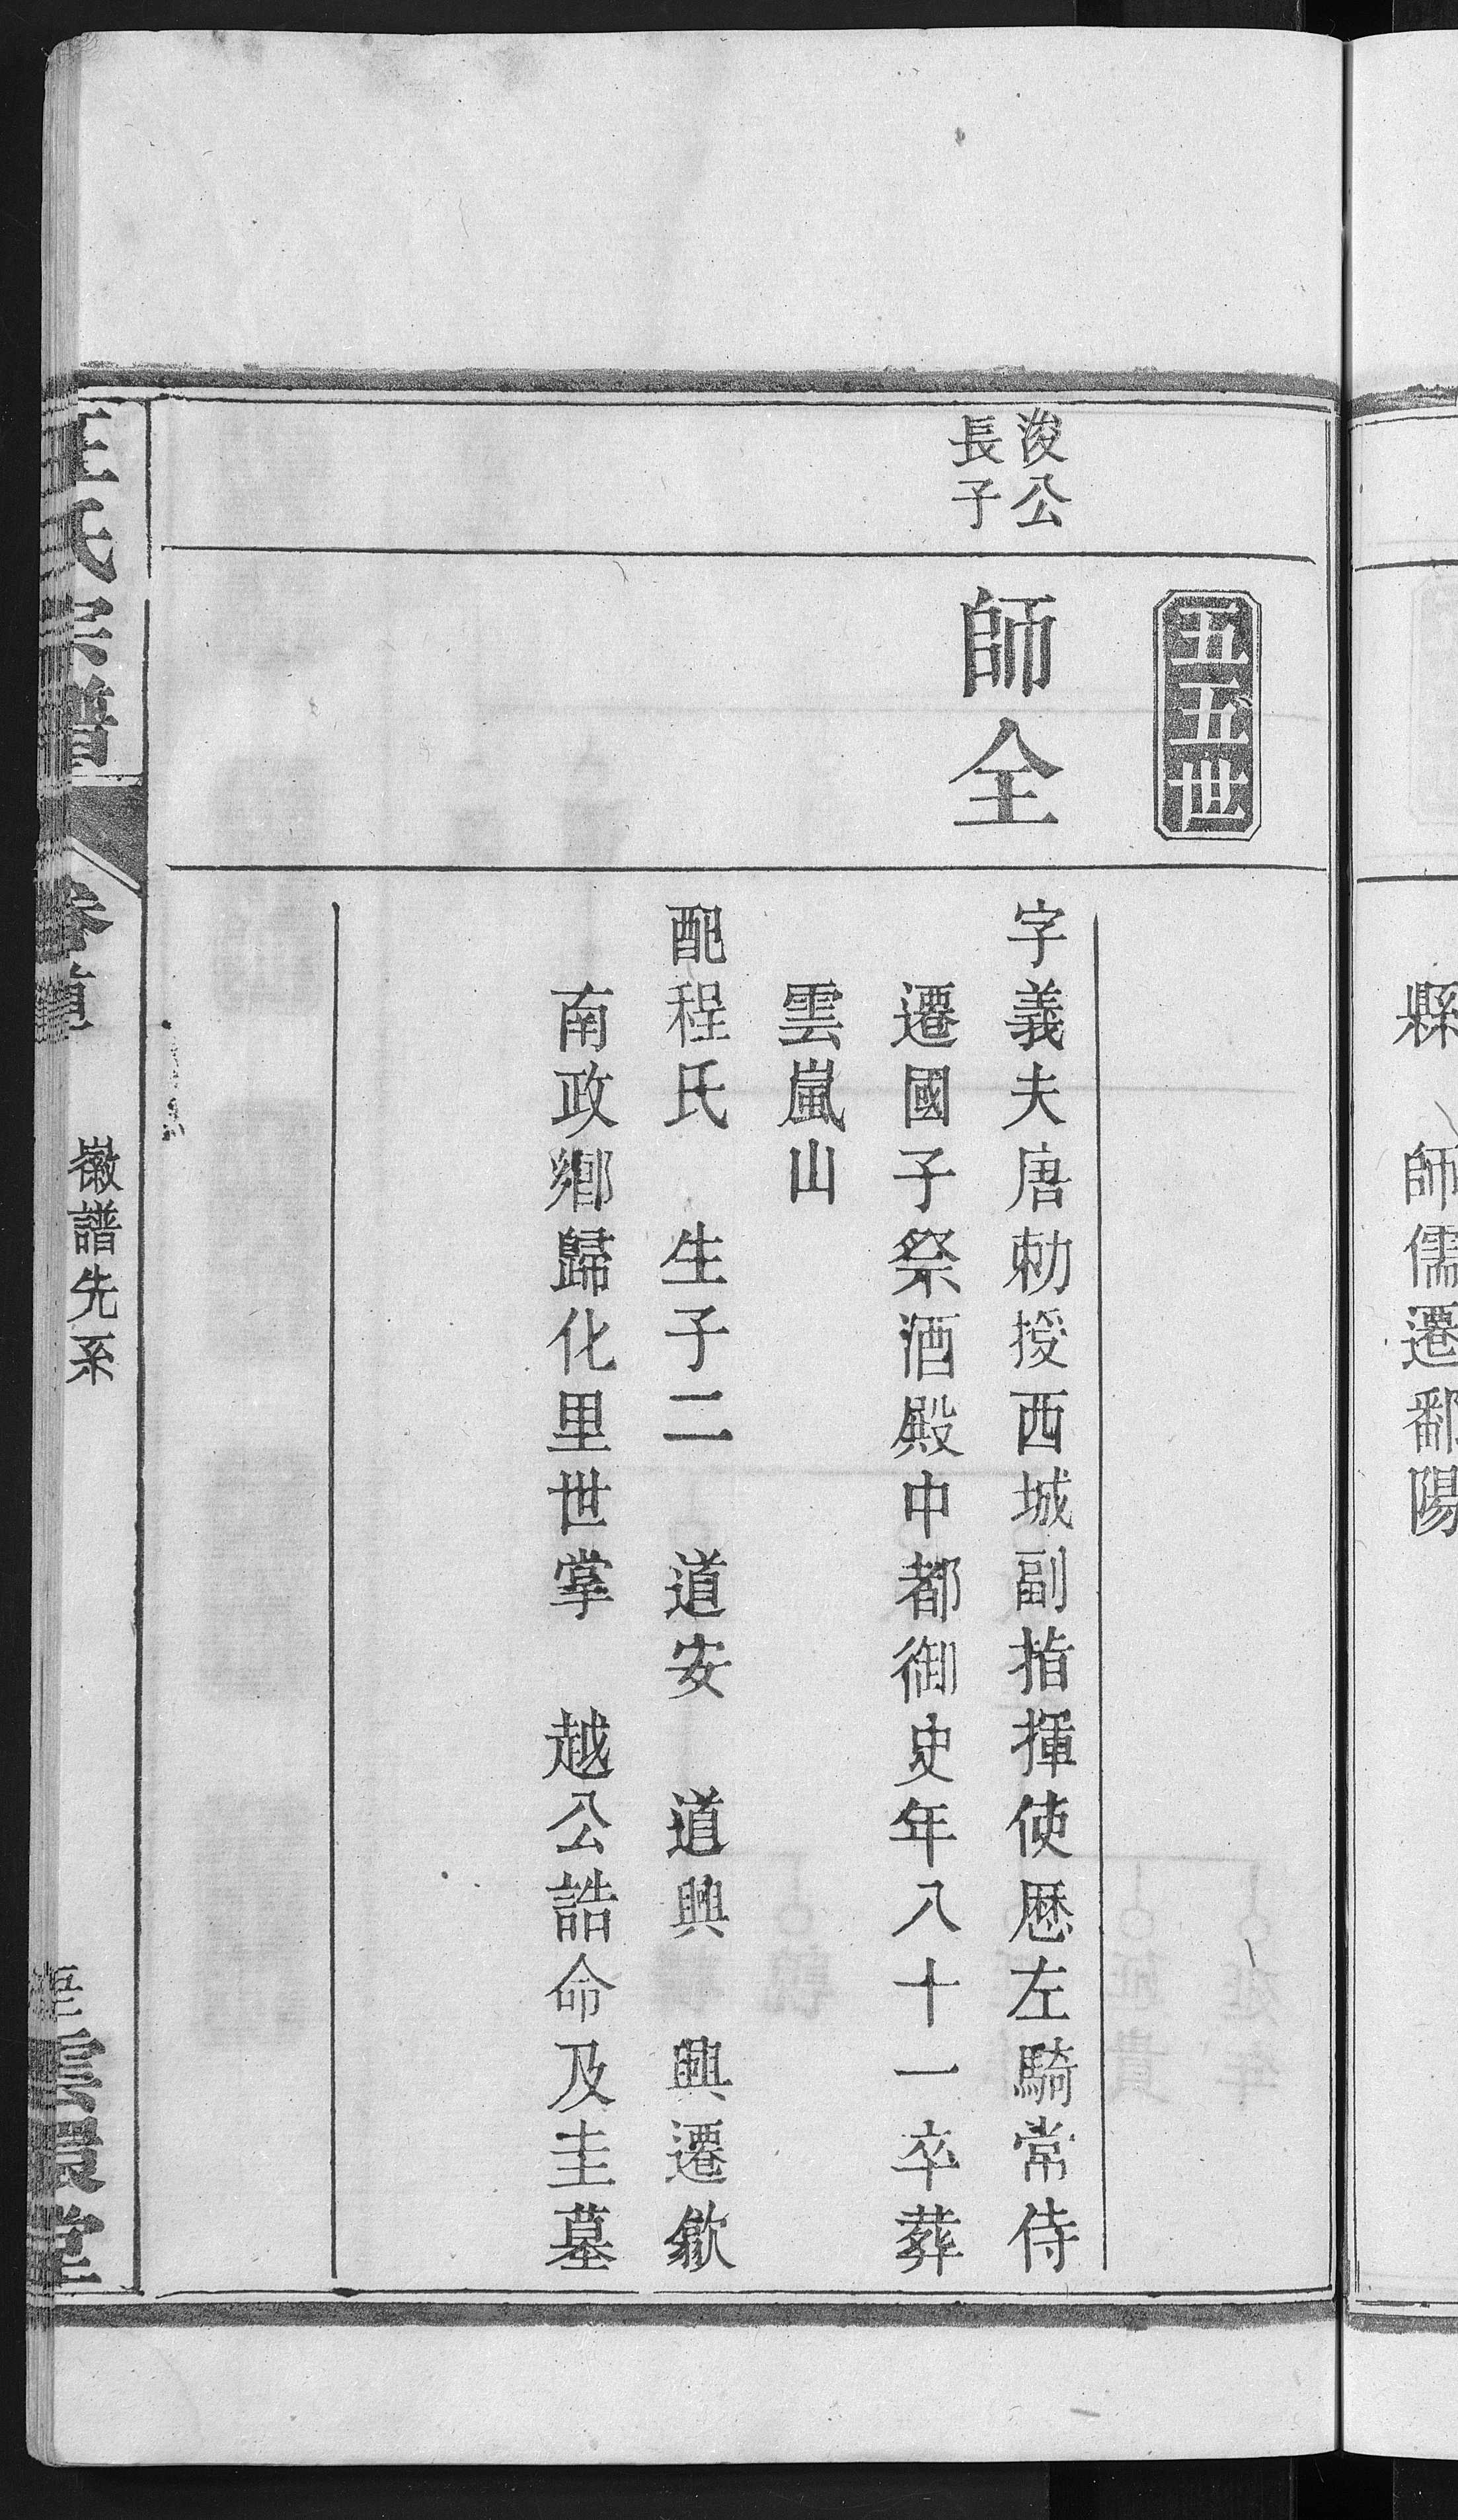 縣　師儒遷鄱陽
五五世
浚公
長子
師全
字義夫唐勅授西城副指揮使歷左騎常侍
遷國子祭酒殿中都御史年八十一卒葬
雲嵐山
配程氏　生子二　道安　道興　興遷歙
南政鄉歸化里世掌　越公誥命及圭墓
氏宗譜
徽譜先系
雲
堂